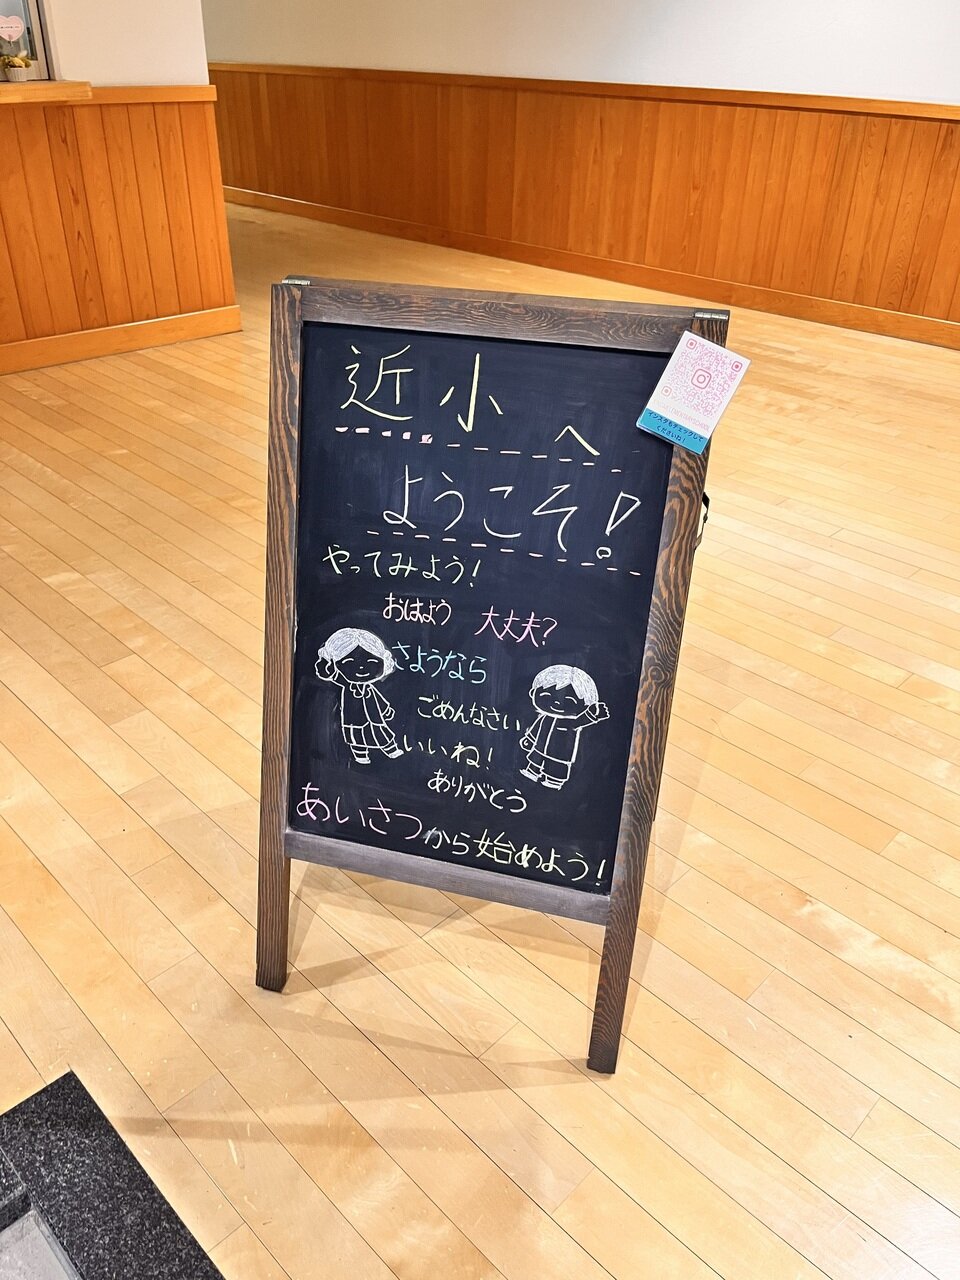 近小へ
ようこそ!
やってみよう!
おはよう 大丈夫?
さようなら
ごめんなさい
いいね!
ありがとう
あいさつから始めよう!
インスタもチェックして
くださいね!